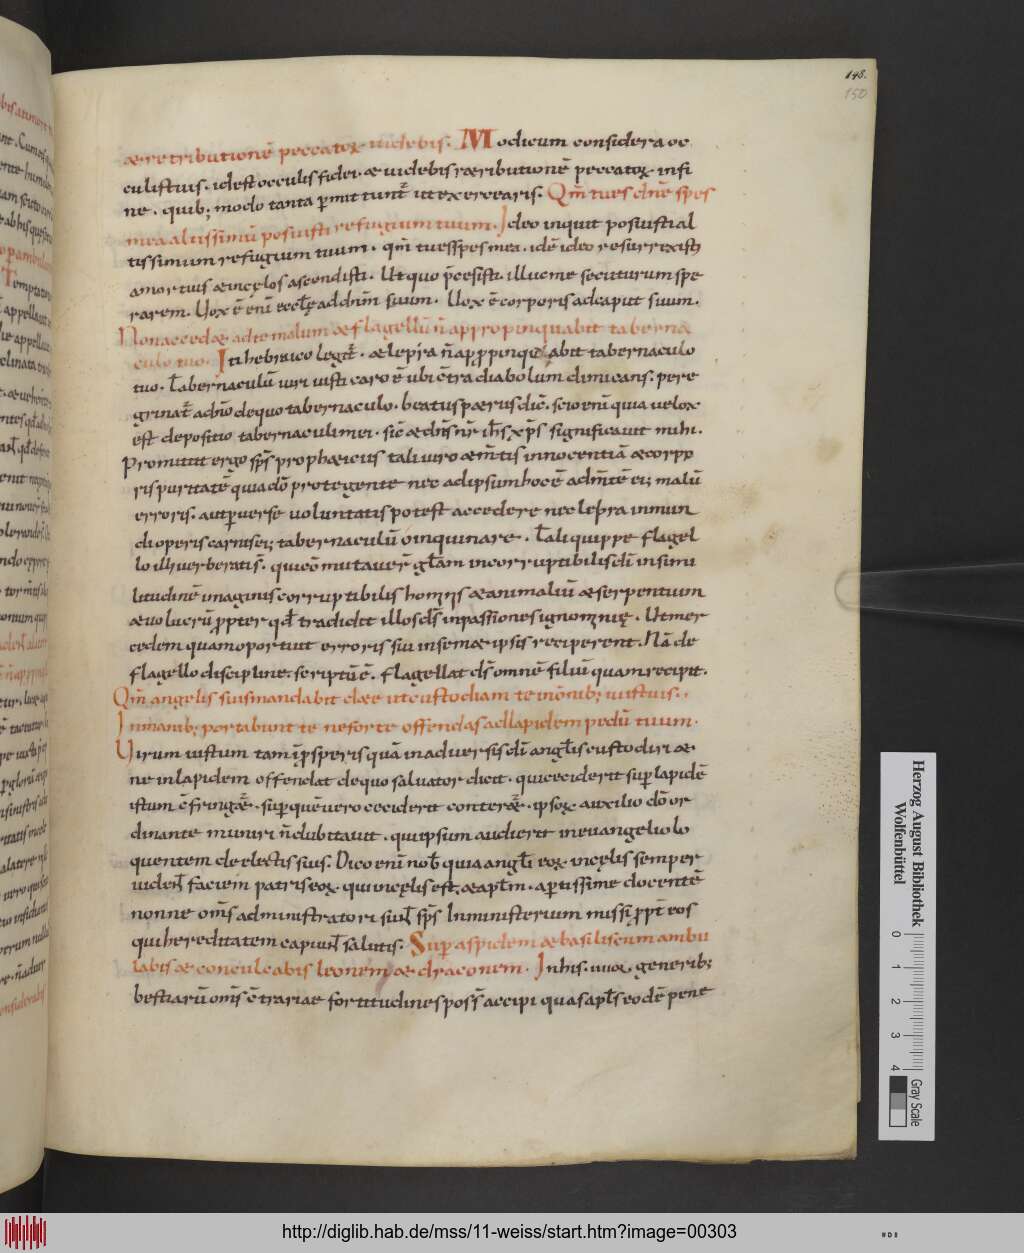 148.
150
æ retributionē peccatoꝝ uidebis. Modicum considera oc
culis tuis. id est occulis fidei. æ uidebis ræributionē peccatoꝝ infi
ne. quib; modo tanta ꝑmittuntᷣ ut exercearis. Qm̄ tu es dn̄e spes
mea altissimū posuisti refugium tuum. Ideo inquit posuisti al
tissimum refugium tuum. qm̄ tu es spes mea. idē ideo resurrexisti
a mortuis æ in cęlos ascendisti. Ut quo p̄cesisti. illuc me secuturum spe
rarem. Uox ē enī eccłę ad dn̄m suum. Uox ē corporis ad caput suum.
Non accedæ ad te malum æ flagellū n̄ appropinquabit taberna
culo tuo. In hebraico legitᷣ. æ lepra n̄ appropinquabit tabernaculo
tuo. Tabernaculū uiri iusti caro ē ubi c̄tra diabolum dimicans. pere
grinatᷣ a dn̄o de quo tabernaculo. beatus pætrus dic̄. scio enī quia uelox
est depositio tabernaculi mei. sic̄ æ dn̄s nr̄ ih̄s xp̄s significauit mihi.
Promittit ergo sp̄s prophæticus tali uiro æ m̄tis innocentiā æ corpo
ris puritatē quia dō protegente nec ad ipsum hoc ē ad m̄tē ei; malū
erroris. aut ꝑuerse uoluntatis potest accedere nec lepra inmun
di operis carnis ei; tabernaculū coinquinare. Tali quippe flagel
lo illi uerberatis̄. qui cō mutauer̄ gło͞am incorruptibilis dī in simi
litudinē imaginis corruptibilis hominis æ animaliū æ serpentium
æ uolucrū ꝓpter qđ tradidit illos ds̄ in passiones ignominię. Ut mer
cedem quam oportuit erroris sui in semæ ipsis reciperent. Nā de
flagello discipline. scriptū ē. flagellat ds̄ omnē filiū quam recipit.
Qm̄ angelis suis mandabit de te ut custodiam te in om̄ib; uiis tuis.
In manib; portabunt te ne forte offendas ad lapidem pedū tuum.
Uirum iustum tam ꝓsperis quā in aduersis dī angłis custodiri æ
ne in lapidem offendat de quo saluator dicit. qui ceciderit suꝑ lapidē
istum c̄fringæᷣ. suꝑ quē uero ceciderit conteræᷣ. ipsoꝝ auxilio dō or
dinante muniri n̄ dubitauit. qui ipsum audierit in euangelio lo
quentem de electis suis. Dico enī nob̄ quia angłi eoꝝ in cęlis semper
uident̄ faciem patris eoꝝ. qui in cęlis est, æ apłm. apertissime docentē
nonne om̄s administratori sunt̄ sp̄s In ministerium missi ꝓpt̄ eos
qui hereditatem capiunt̄ salutis. Suꝑ aspidem æ basiliscum ambu
labis æ conculcabis leonem æ draconem. In his. iiiioꝝ. generib;
bestiarū om̄s c̄trariae fortitudines poss̄ accipi quas apłs eodē pene
Herzog August Bibliothek
Wolfenbüttel
0 1 2 3 4
Gray Scale
http://diglib.hab.de/mss/11-weiss/start.htm?image=00303